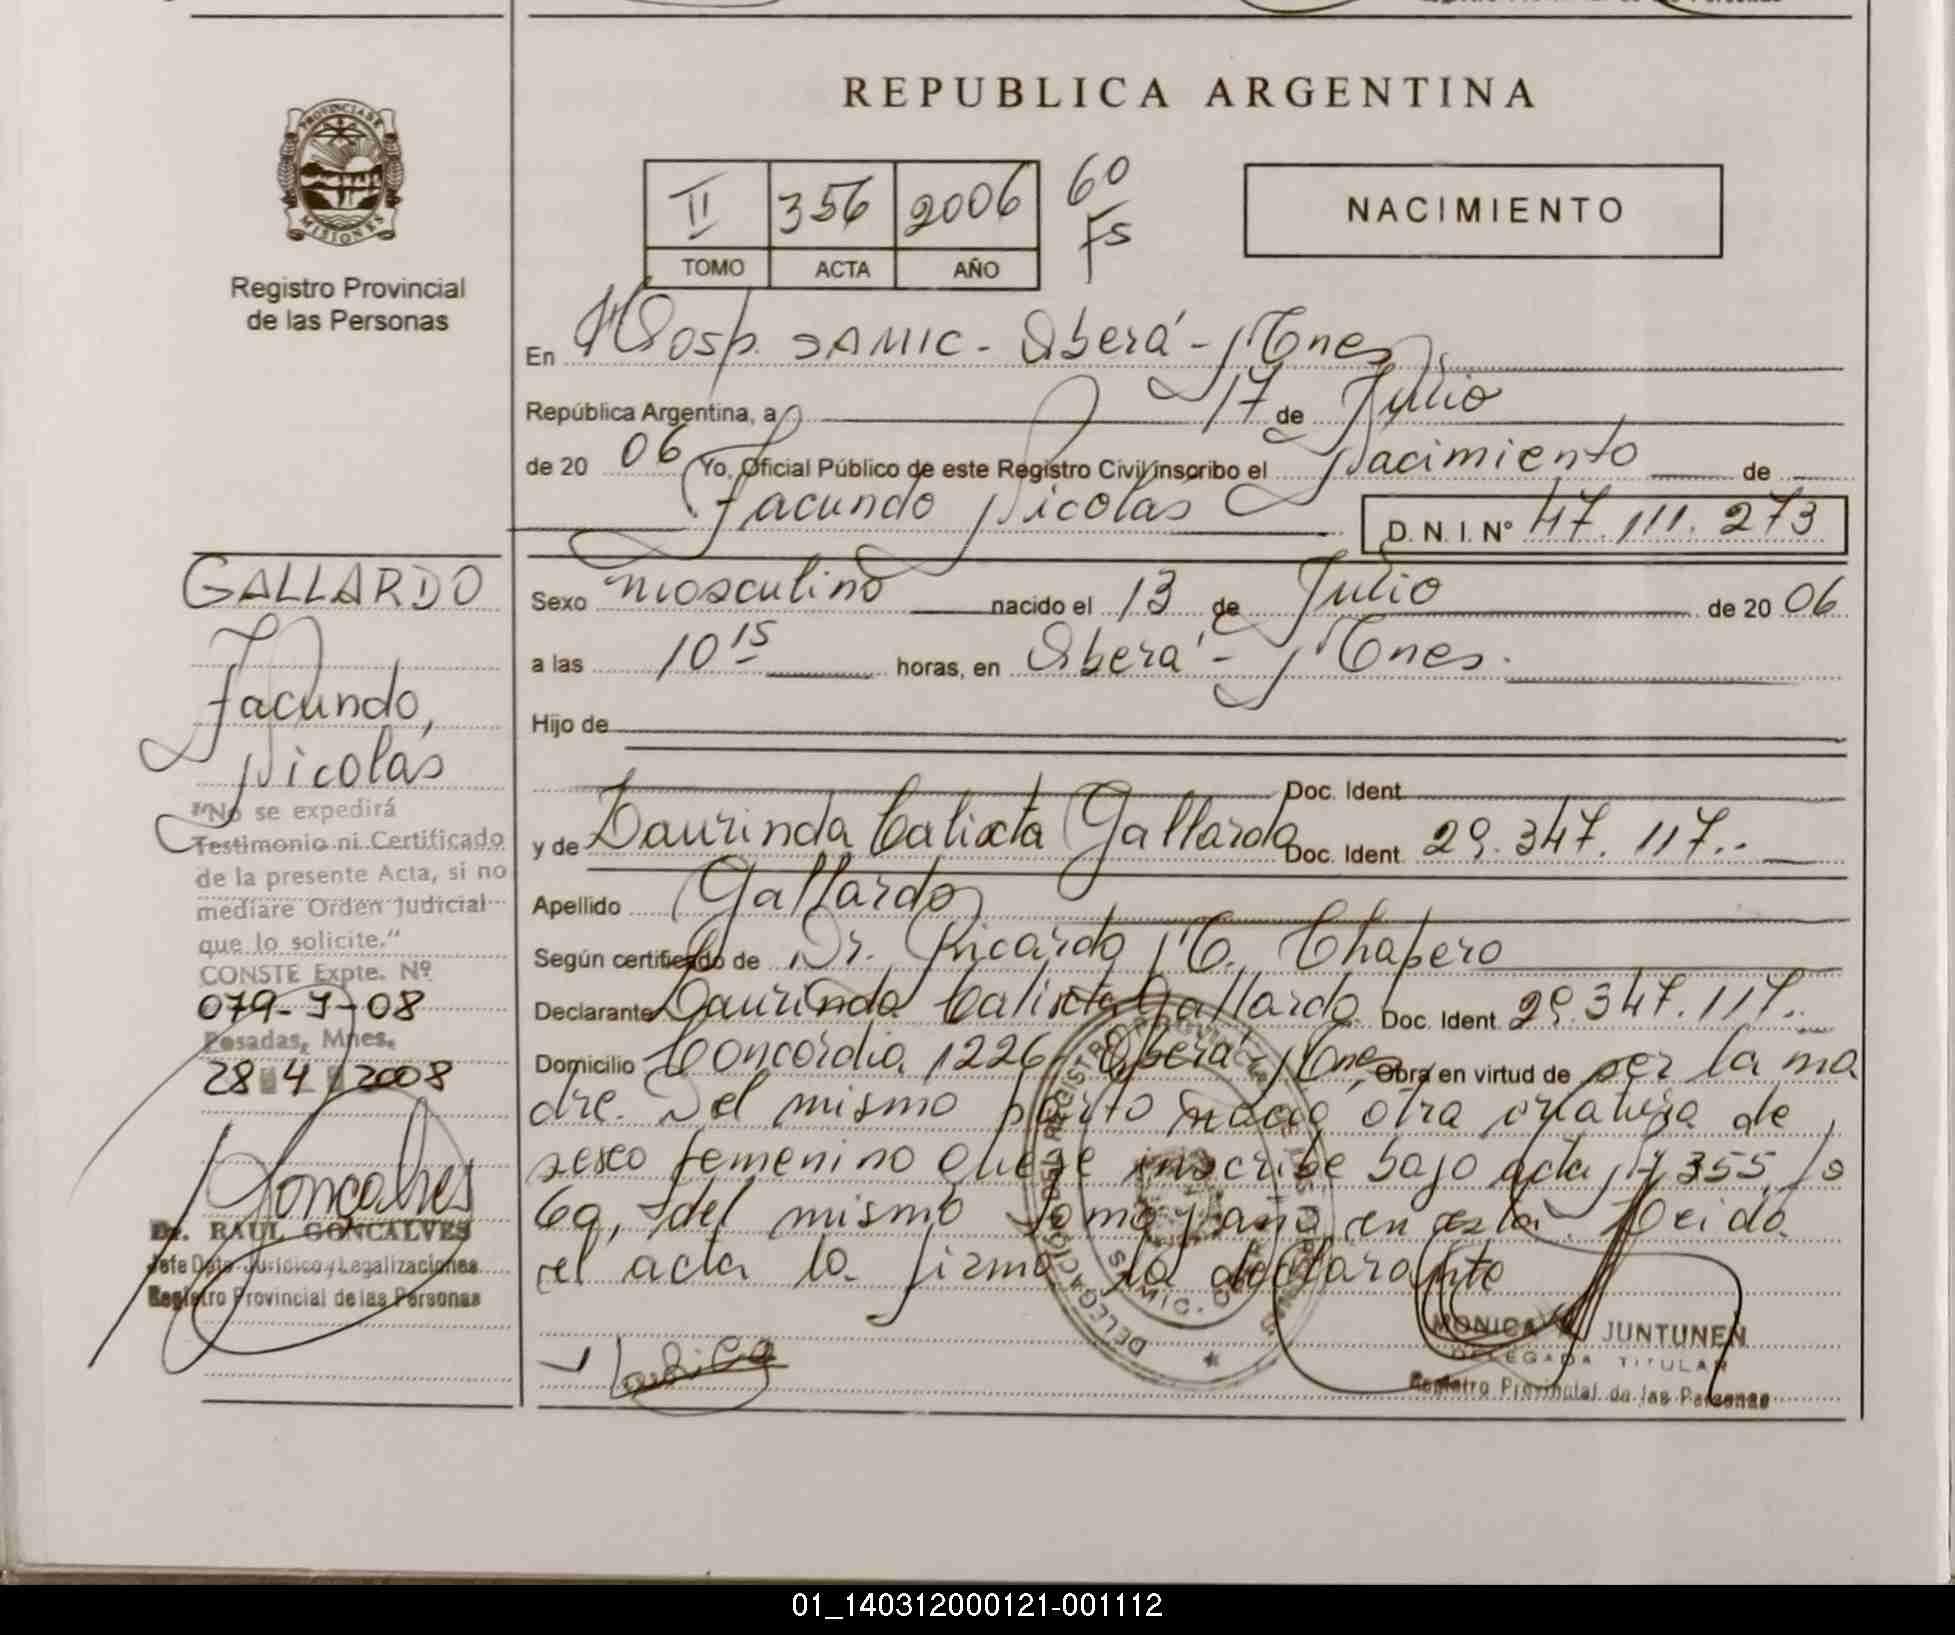 REPUBLICA ARGENTINA
PROVINCIA DE MISIONES
Registro Provincial
de las Personas
II 356 2006 60
TOMO ACTA AÑO Fs
NACIMIENTO
En Hosp. SAMIC - Oberá - Mnes
República Argentina, a 17 de Julio
de 20 06 Yo, Oficial Público de este Registro Civil inscribo el Nacimiento de
Facundo Nicolás D. N. I. Nº 47.111.273
GALLARDO
Facundo,
Nicolás
"No se expedirá
Testimonio ni Certificado
de la presente Acta, si no
mediare Orden Judicial
que lo solicite."
CONSTE Expte. Nº
079-J-08
Posadas, Mnes.
28 4 2008
Goncalves
Dr. RAUL GONCALVES
Jefe Dpto. Jurídico y Legalizaciones
Registro Provincial de las Personas
Sexo masculino nacido el 13 de Julio de 20 06
a las 10 15 horas, en Oberá - Mnes.
Hijo de
Doc. Ident.
y de Laurinda Calixta Gallardo Doc. Ident. 29.347.117..
Apellido Gallardo
Según certificado de Dr. Ricardo M. Chapero
Declarante Laurinda Calixta Gallardo Doc. Ident. 29.347.117..
Domicilio Concordia 1226 - Oberá - Mnes, Obra en virtud de ser la ma
dre. Del mismo parto nació otra criatura de
sexo femenino que se inscribe bajo acta Nº 355, fs
60, del mismo tomo y año en esta. Leida
el acta la firma la declarante
MONICA JUNTUNEN
DELEGADA TITULAR
Registro Provincial de las Personas
01_140312000121-001112